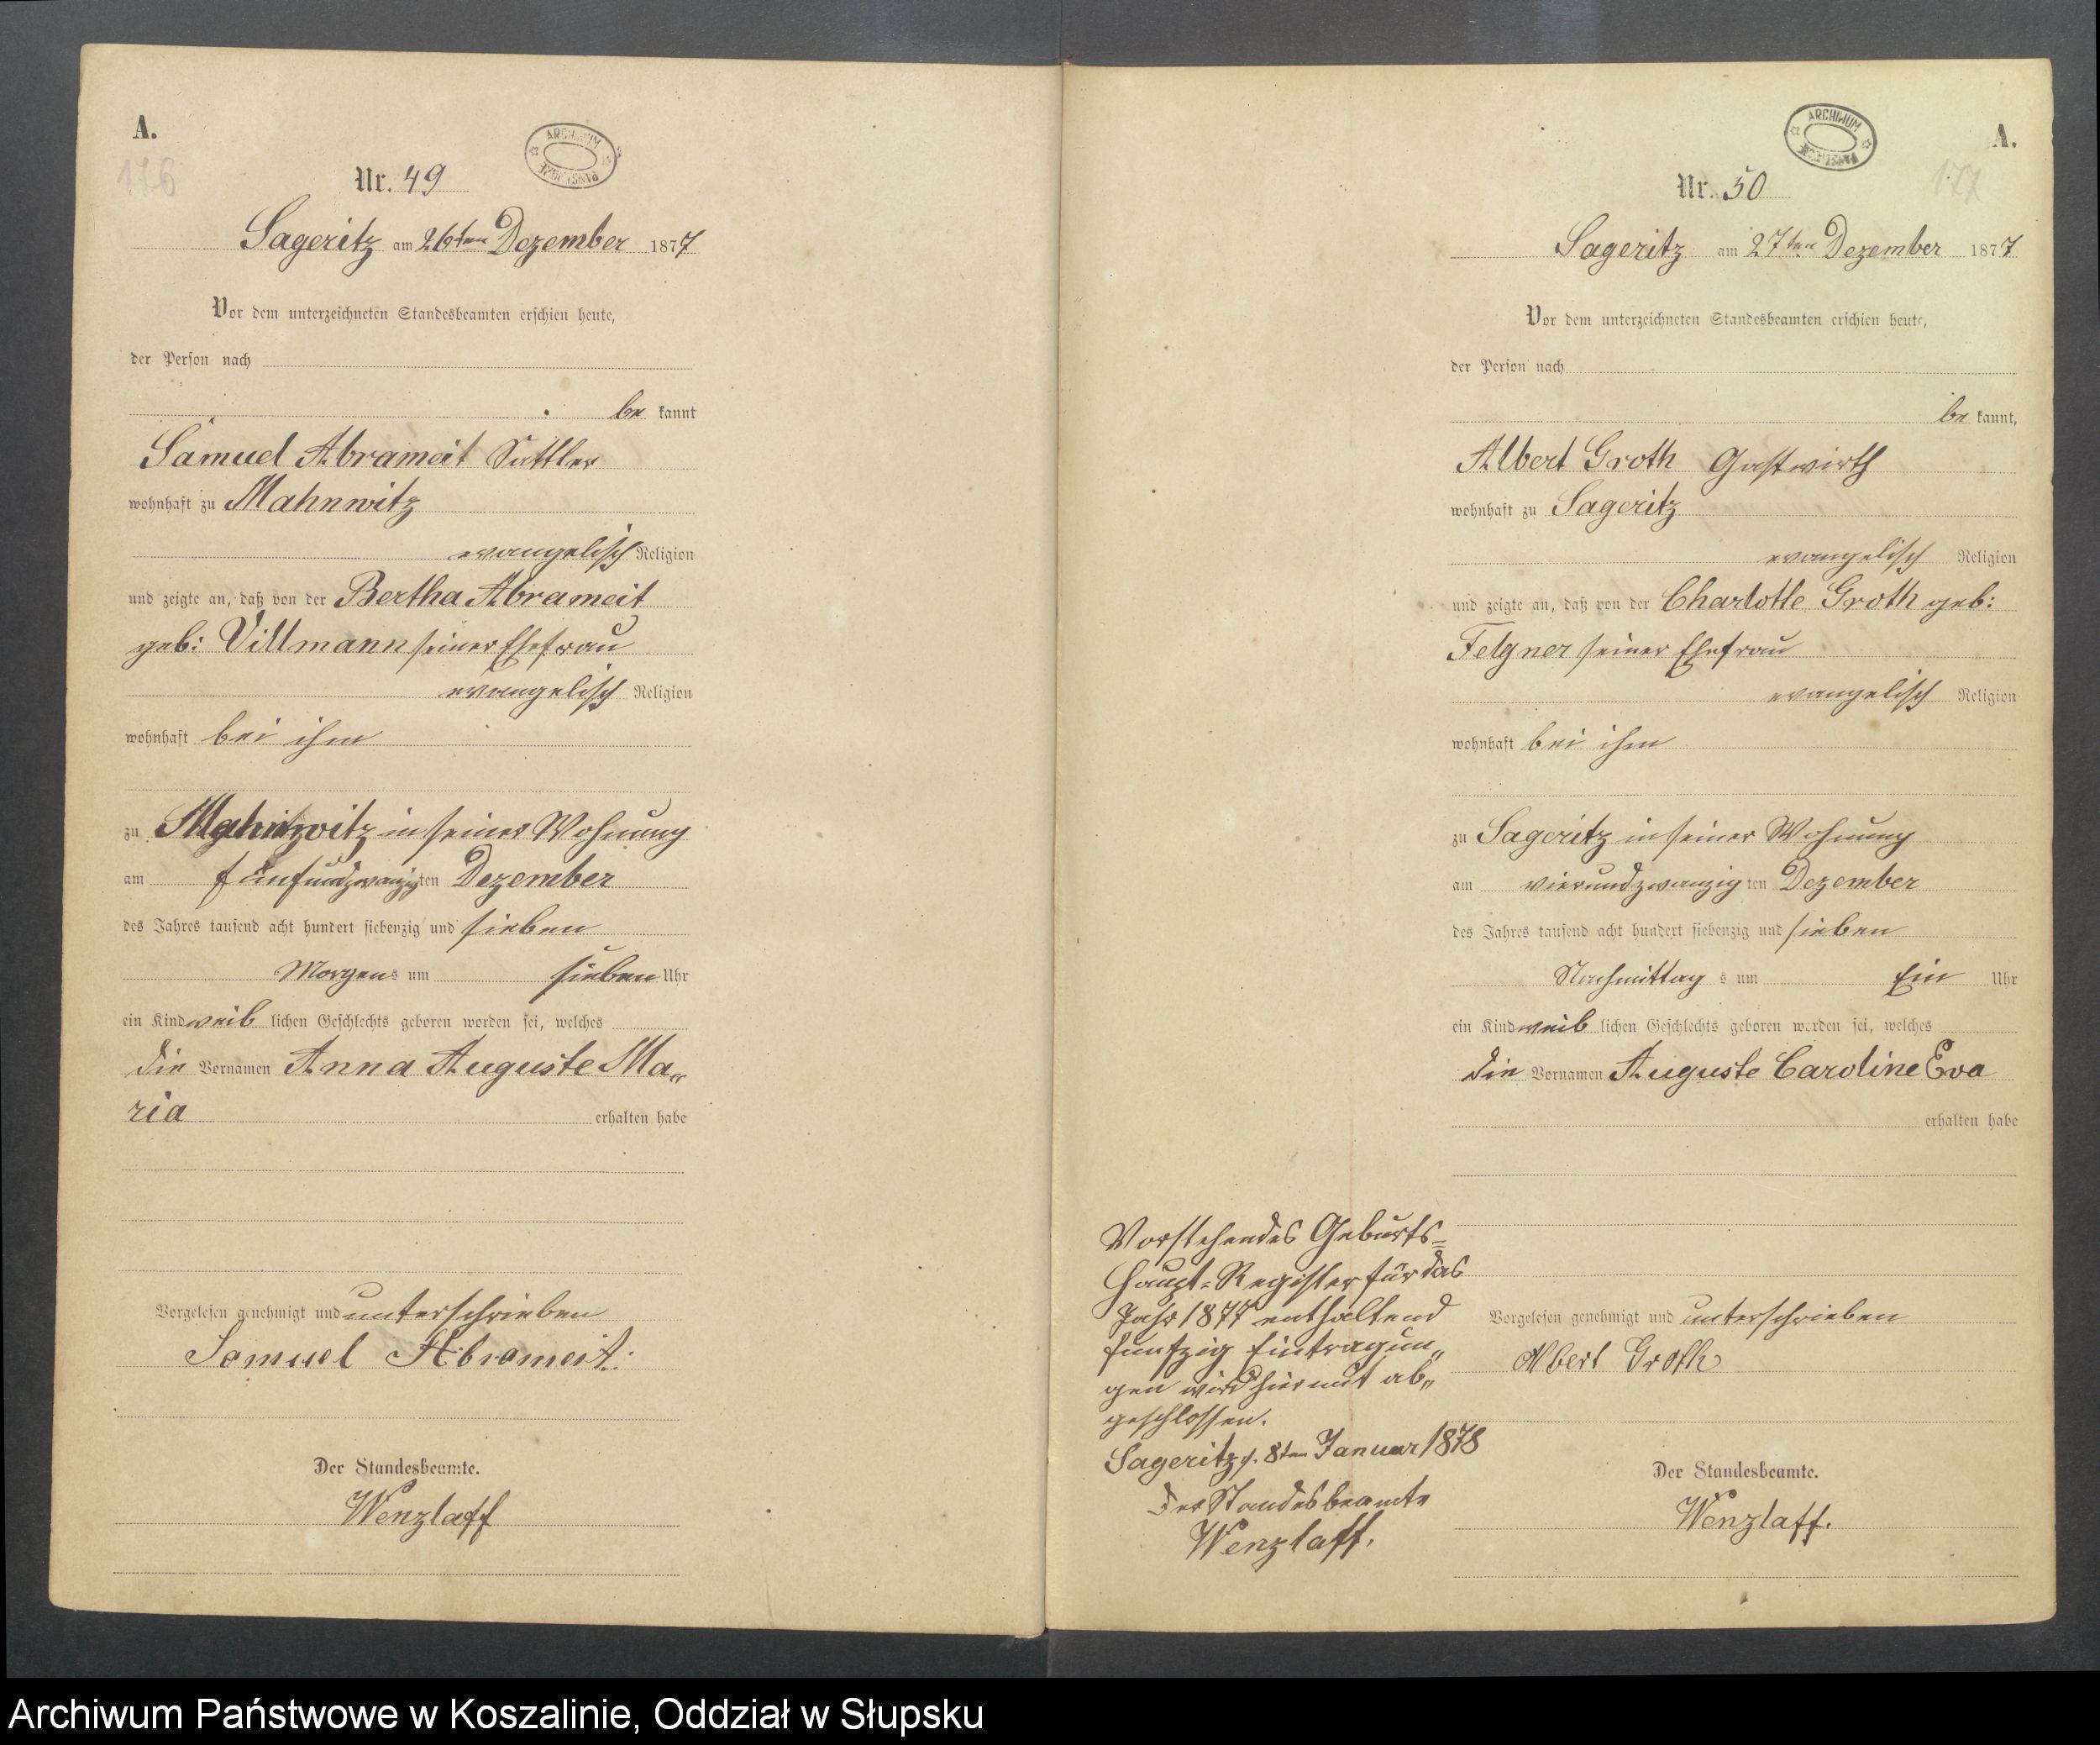 A.
176
ARCHIWUM PAŃSTWOWE
Nr. 49
Sageritz am 26ten Dezember 1877
Vor dem unterzeichneten Standesbeamten erschien heute,
der Person nach
be kannt
Samuel Abrameit Sattler
wohnhaft zu Mahnwitz
evangelisch Religion
und zeigte an, daß von der Bertha Abrameit
geb: Villmann seiner Ehefrau
evangelisch Religion
wohnhaft bei ihm
zu Mahnwitz in seiner Wohnung
am fünfundzwanzigten Dezember
des Jahres tausend acht hundert siebenzig und sieben
Morgens um sieben Uhr
ein Kind weiblichen Geschlechts geboren worden sei, welches
die Vornamen Anna Auguste Ma„
ria erhalten habe
Vorgelesen genehmigt und unterschrieben
Samuel Abrameit.
Der Standesbeamte.
Wenzlaff
A.
177
ARCHIWUM PAŃSTWOWE
Nr. 50
Sageritz am 27ten Dezember 1877
Vor dem unterzeichneten Standesbeamten erschien heute,
der Person nach
be kannt,
Albert Groth Gastwirth
wohnhaft zu Sageritz
evangelisch Religion
und zeigte an, daß von der Charlotte Groth geb:
Felgner seiner Ehefrau
evangelisch Religion
wohnhaft bei ihm
zu Sageritz in seiner Wohnung
am vierundzwanzigten Dezember
des Jahres tausend acht hundert siebenzig und sieben
Nachmittags um Ein Uhr
ein Kind weiblichen Geschlechts geboren worden sei, welches
die Vornamen Auguste Caroline Eva
erhalten habe
Vorgelesen genehmigt und unterschrieben
Albert Groth
Der Standesbeamte.
Wenzlaff.
Vorstehendes Geburts=
Haupt=Register für das
Jahr 1877 enthaltend
funfzig Eintragun„
gen wird hiermit ab„
geschlossen.
Sageritz d. 8ten Januar 1878
Der Standesbeamte
Wenzlaff.
Archiwum Państwowe w Koszalinie, Oddział w Słupsku